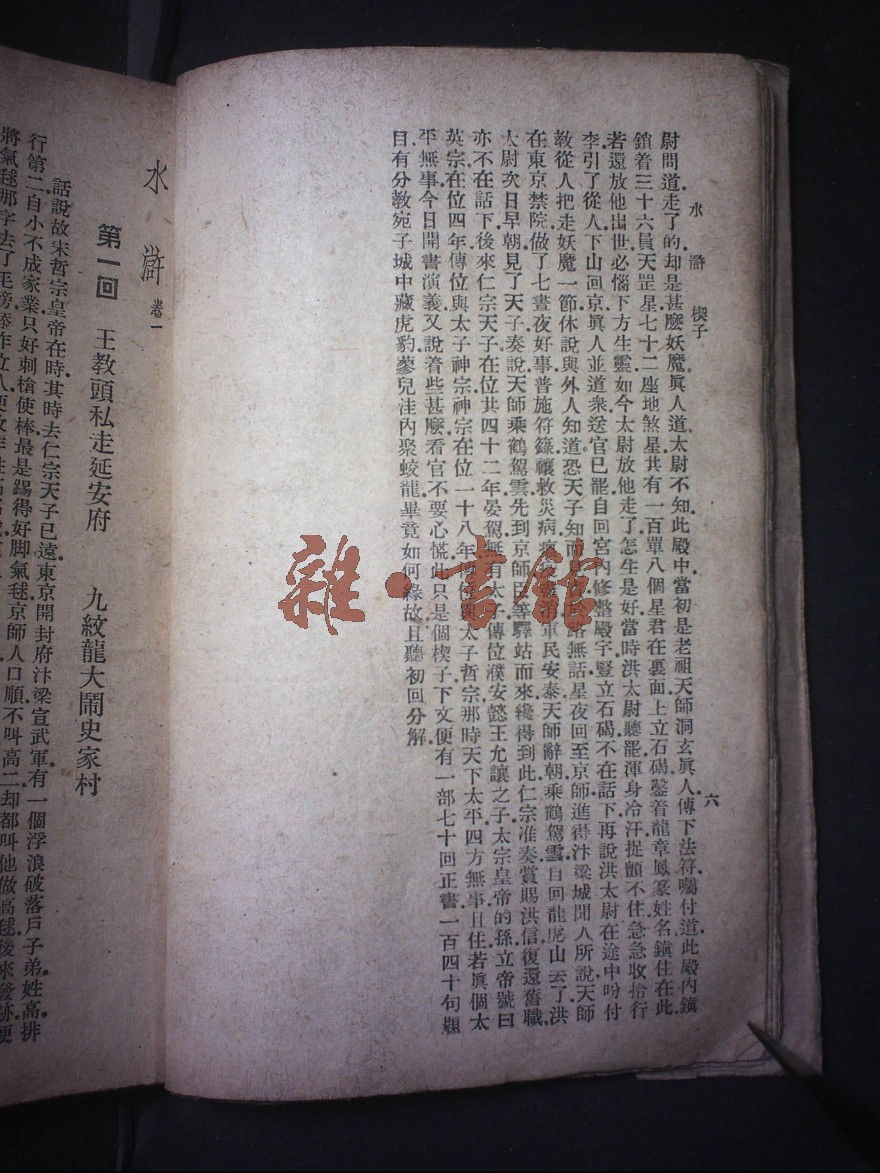 水滸　楔子　六
尉問道走了的却是甚麽妖魔眞人道太尉不知此殿中當初是老祖天師洞玄眞人傳下法符囑付道此殿內鎭
鎖着三十六員天罡星七十二座地煞星共有一百單八個星君在裏面上立石碣鑿着龍章鳳篆姓名鎭住在此
若還放他出世必惱下方生靈如今太尉放他走了怎生是好當時洪太尉聽罷渾身冷汗捉顫不住急急收拾行
李引了從人下山回京眞人並道衆送官已罷自回宮內修整殿宇豎立石碣不在話下再說洪太尉在途中吩付
敎從人把走妖魔一節休說與外人知道恐天子知而 路無話星夜回至京師進得汴梁城聞人所說天師
在東京禁院做了七晝夜好事普施符籙禳救災病 軍民安泰天師辭朝乘鶴駕雲自回龍虎山去了洪
太尉次日早朝見了天子奏說天師乘鶴駕雲先到京師臣等驛站而來纔得到此仁宗准奏賞賜洪信復還舊職
亦不在話下後來仁宗天子在位共四十二年晏駕無有太子傳位濮安懿王允讓之子太宗皇帝的孫立帝號曰
英宗在位四年傳位與太子神宗神宗在位一十八年傳位與太子哲宗那時天下太平四方無事且住若眞個太
平無事今日開書演義又說着些甚麽看官不要心慌此只是個楔子下文便有一部七十回正書一百四十句題
目有分敎宛子城中藏虎豹蓼兒洼內聚蛟龍畢竟如何緣故且聽初回分解
水滸　卷一
第一回　王敎頭私走延安府　九紋龍大鬧史家村
話說故宋哲宗皇帝在時其時去仁宗天子已遠東京開封府汴梁宣武軍有一個浮浪破落戶子弟姓高排
行第二自小不成家業只好刺槍使棒最是踢得好脚氣毬京師人口順不叫高二却都叫他做高毬後來發跡便
將氣毬那字去了毛傍添作立人便改作姓高
雜·書館